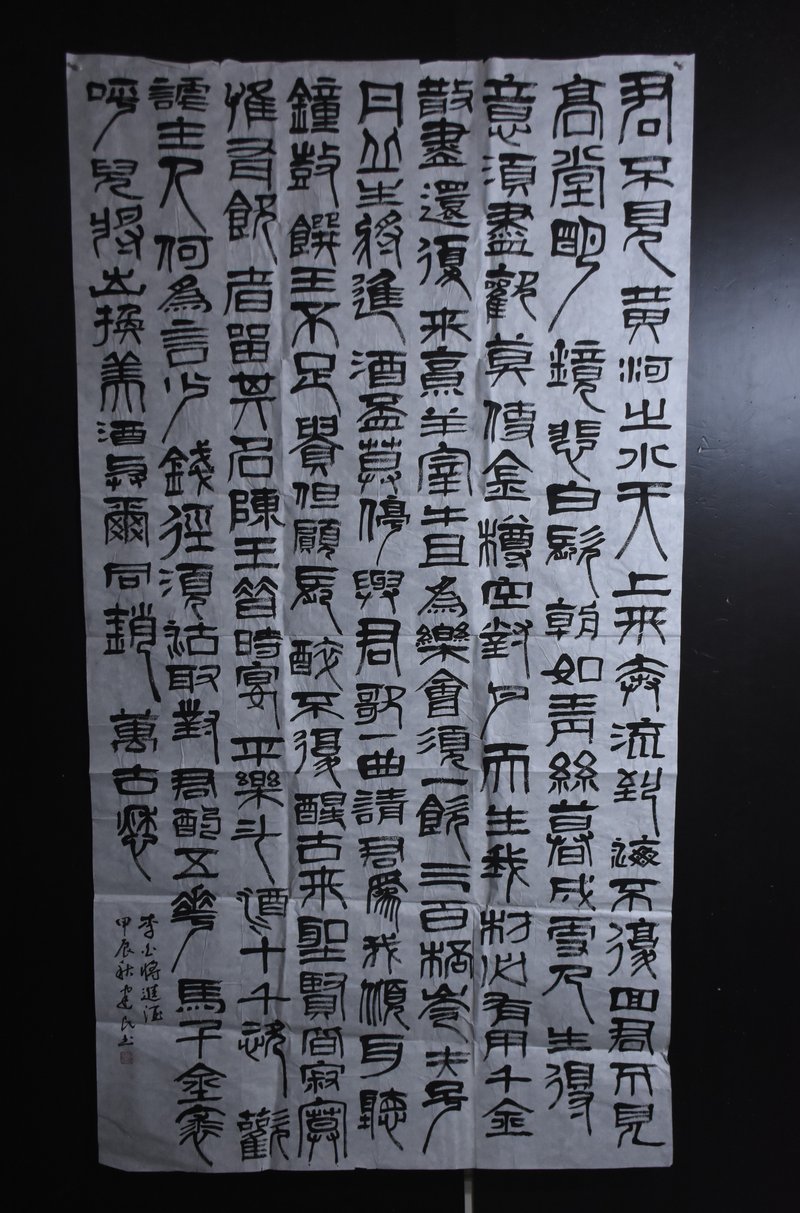 君不見黃河之水天上來奔流到海不復回君不見
高堂明鏡悲白髮朝如青絲暮成雪人生得
意須盡歡莫使金樽空對月天生我材必有用千金
散盡還復來烹羊宰牛且為樂會須一飲三百杯岑夫子
丹丘生將進酒杯莫停與君歌一曲請君為我傾耳聽
鐘鼓饌玉不足貴但願長醉不復醒古來聖賢皆寂寞
惟有飲者留其名陳王昔時宴平樂斗酒十千恣歡
謔主人何為言少錢徑須沽取對君酌五花馬千金裘
呼兒將出換美酒與爾同銷萬古愁
李白將進酒
甲辰秋建民书